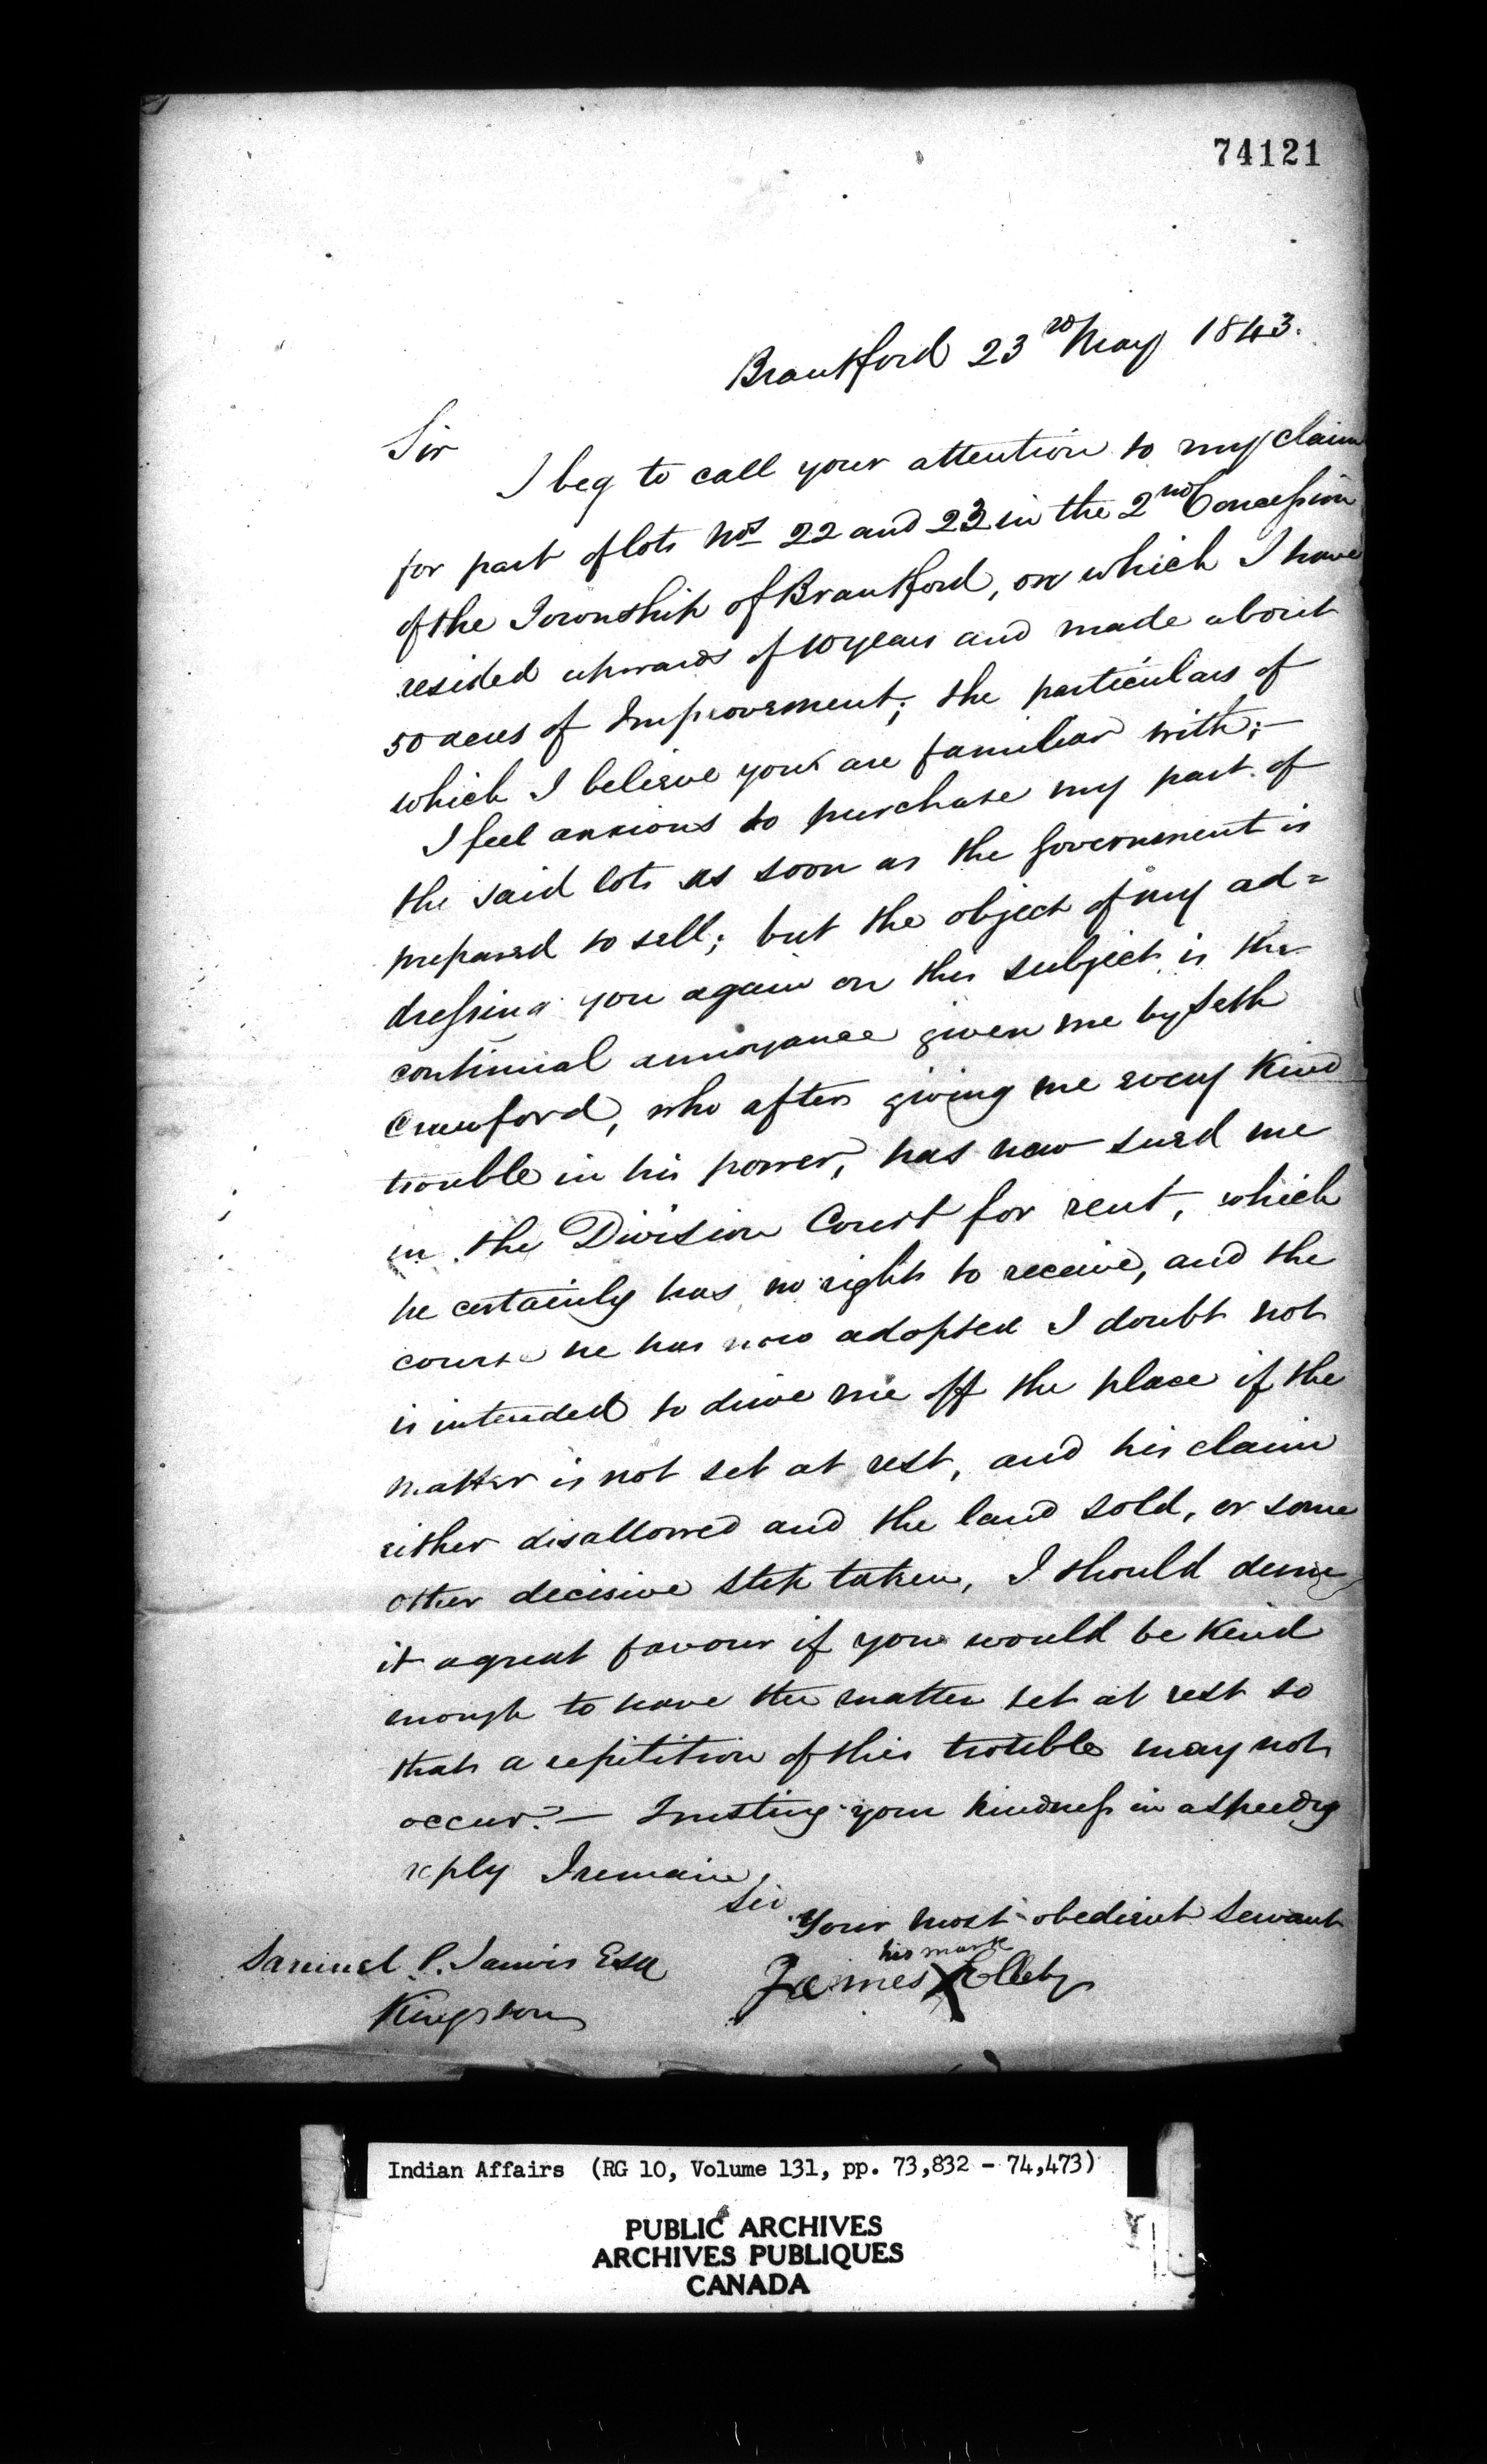 74121
Brantford 23rd May 1843.
Sir
I beg to call your attention to my claim
for part of lots Nos 22 and 23 in the 2nd Concession
of the Township of Brantford, on which I have
resided upwards of 10 years and made about
50 acres of Improvement; the particulars of
which I believe you are familiar with;—
I feel anxious to purchase my part of
the said lots as soon as the Government is
prepared to sell; but the object of my ad=
dressing you again on this subject is the
continual annoyance given me by Seth
Crawford, who after giving me every kind
trouble in his power, has now sued me
in the Division Court for rent, which
he certainly has no right to receive, and the
course he has now adopted I doubt not
is intended to drive me off the place if the
matter is not set at rest, and his claim
either disallowed and the land sold, or some
other decisive step taken, I should deme
it a great favour if you would be kind
enough to have the matter set at rest so
that a repitition of this trouble may not
occur.— Trusting your kindness in a speedy
reply I remain
Sir
Your most obedient Servant
his mark
James X
Samuel P. Jarvis Esq
Kingston
Indian Affairs (RG 10, Volume 131, pp. 73,832 - 74,473)
PUBLIC ARCHIVES
ARCHIVES PUBLIQUES
CANADA